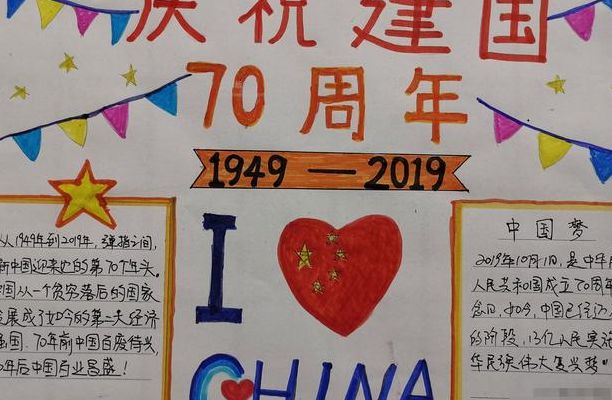 庆祝建国
70周年
1949 — 2019
I
CHINA
从1949年到2019年，弹指之间，
新中国迎来它的第70个年头。
国从一个贫穷落后的国家
发展成了如今的第二大经济
强国，70年前中国百废待兴，
0年后中国百业昌盛！
中国梦
2019年10月1日，是中华
人民共和国成立70周年
念日，如今，中国已经迈入
的阶段，13亿人民实施
华民族伟大复兴梦。